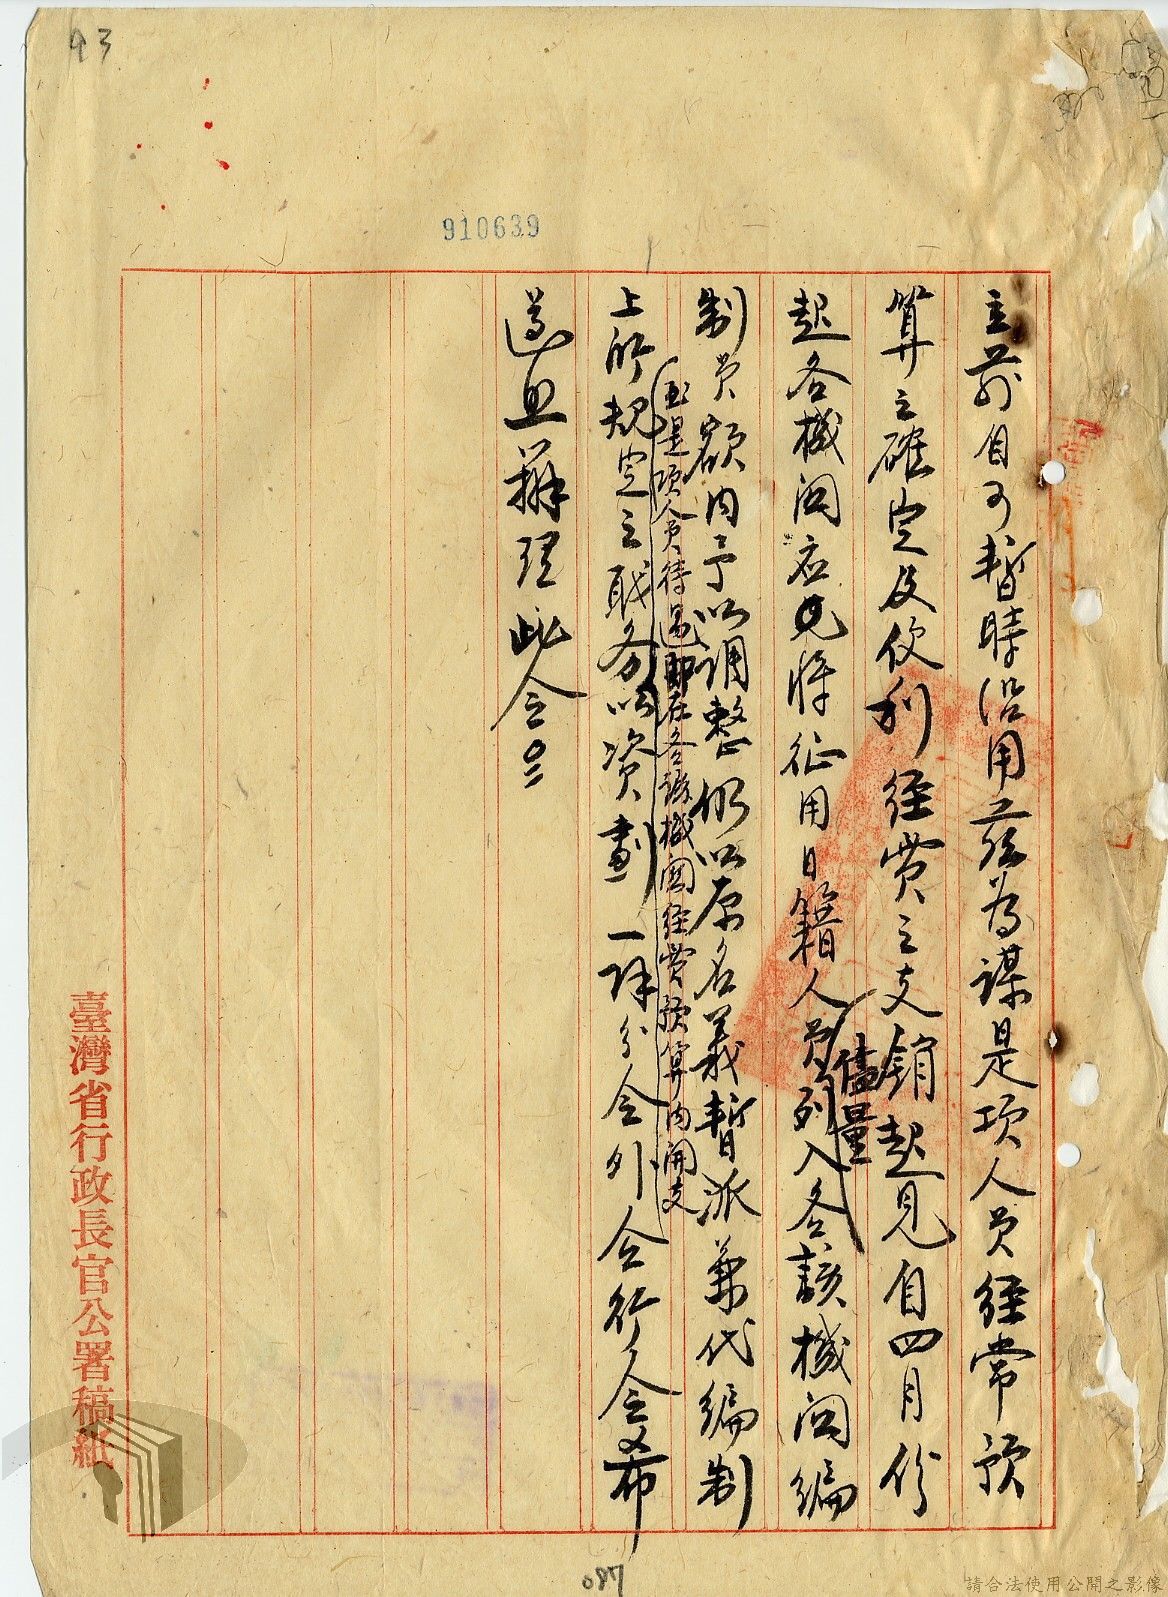 93
910639
主前自可暫時沿用茲為謀是項人員經常預
算之確定及便利經費之支銷起見自四月份
起各機関應先將征用日籍人員儘量列入各該機関編
制員額内予以調整仍以原名義暫派兼代編制
上所規定之職務以資劃一
至是項人員待遇即在各該機關經費預算内開支
除分令外合行令希
遵照辦理此令
臺灣省行政長官公署稿紙
087
請合法使用公開之影像